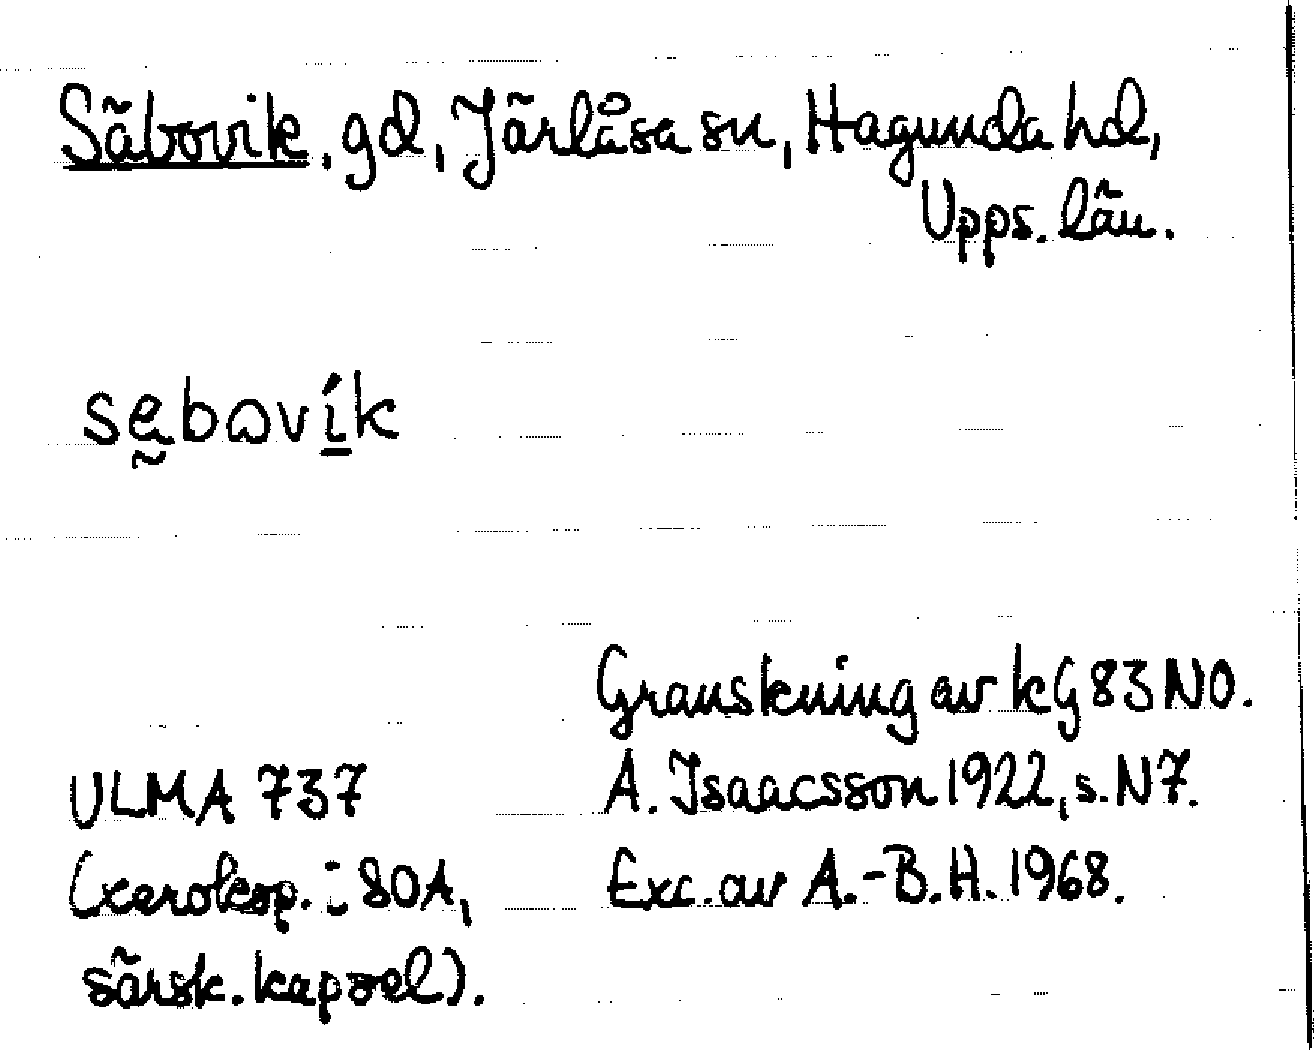 Säbovik, gd, Järlåsa sn, Hagunda hd,
Upps. län.
sębωvík
Granskning av kG 83 NO.
ULMA 737
A. Isaacsson 1922, s. N7.
(xerokop. i 80A,
Exc. av A.-B.H. 1968.
särsk. kapsel).